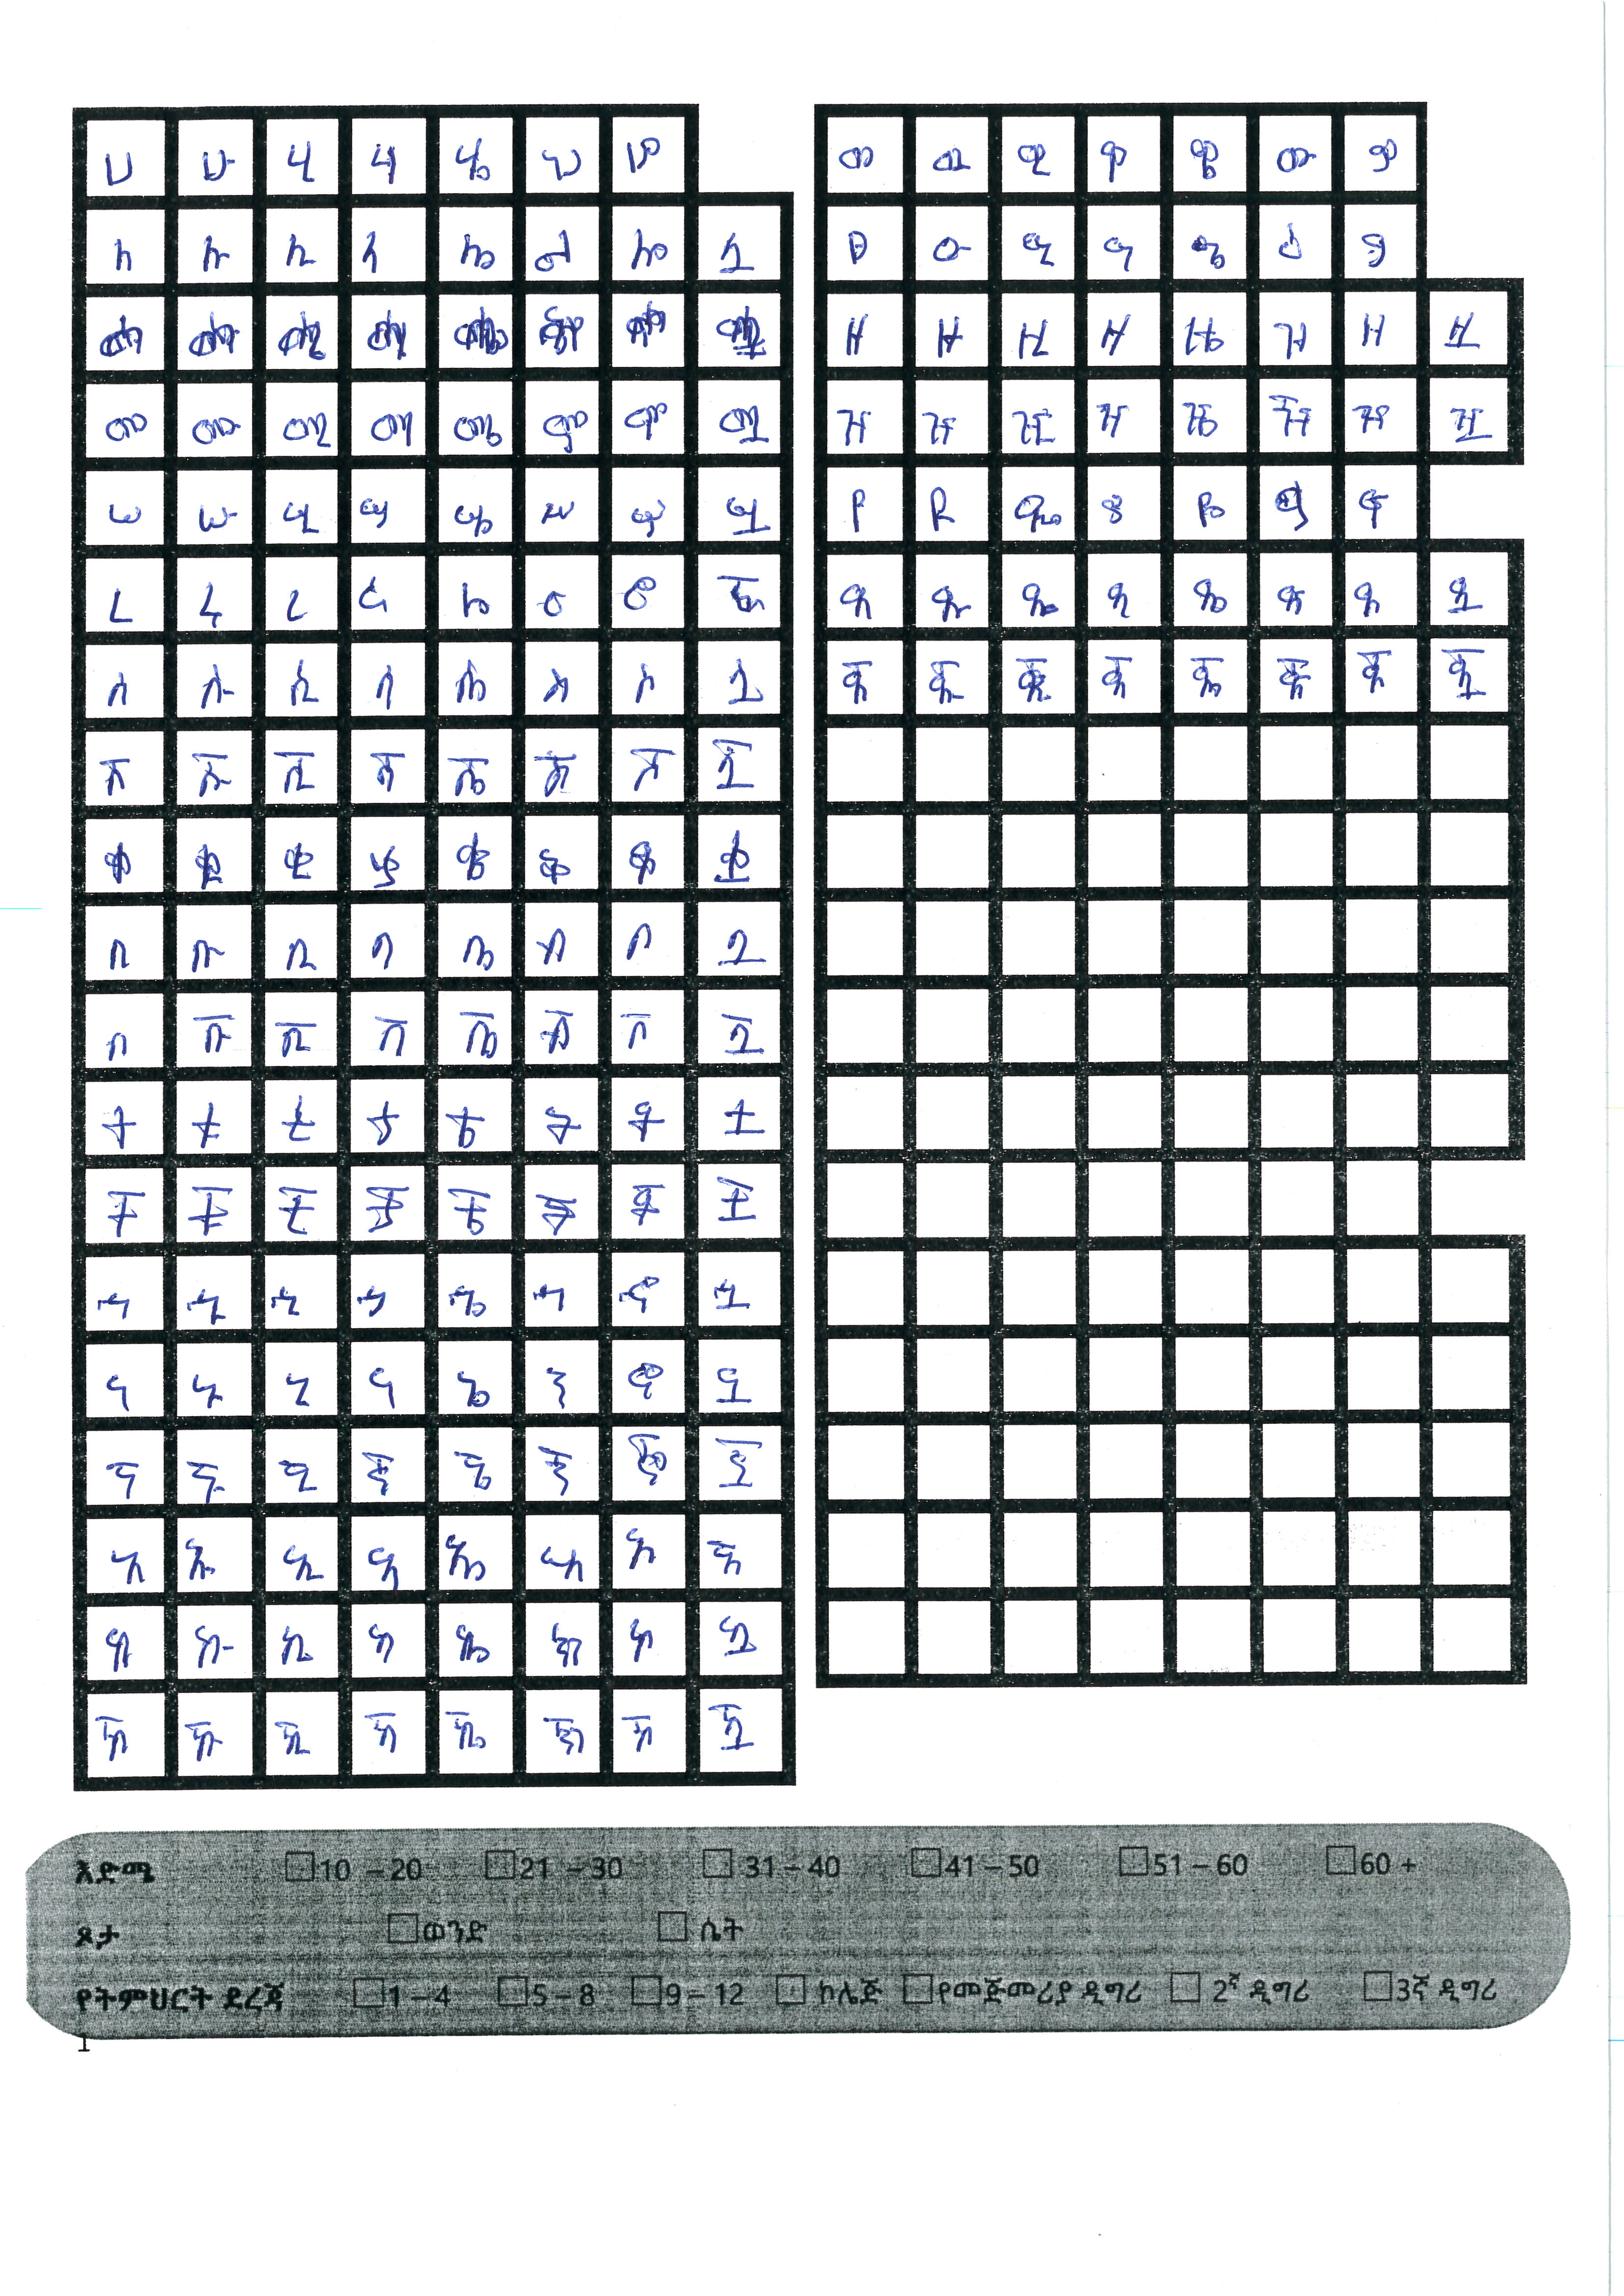 ሀ ሁ ሂ ሃ ሄ ህ ሆ
ለ ሉ ሊ ላ ሌ ል ሎ ሏ
መ ሙ ሚ ማ ሜ ም ሞ ሟ
ሠ ሡ ሢ ሣ ሤ ሥ ሦ ሧ
ረ ሩ ሪ ራ ሬ ር ሮ ሯ
ሰ ሱ ሲ ሳ ሴ ስ ሶ ሷ
ሸ ሹ ሺ ሻ ሼ ሽ ሾ ሿ
ቀ ቁ ቂ ቃ ቄ ቅ ቆ ቋ
በ ቡ ቢ ባ ቤ ብ ቦ ቧ
በ ቩ ቪ ቫ ቬ ቭ ቮ ቯ
ተ ቱ ቲ ታ ቴ ት ቶ ቷ
ቸ ቹ ቺ ቻ ቼ ች ቾ ቿ
ኀ ኁ ኂ ኃ ኄ ኅ ኆ ኋ
ነ ኑ ኒ ና ኔ ን ኖ ኗ
ኘ ኙ ኚ ኛ ኜ ኝ ኞ ኟ
አ ኡ ኢ ኣ ኤ እ ኦ ኧ
ከ ኩ ኪ ካ ኬ ክ ኮ ኳ
ኸ ኹ ኺ ኻ ኼ ኽ ኾ ዃ
ወ ዉ ዊ ዋ ዌ ው ዎ
ዐ ዑ ዒ ዓ ዔ ዕ ዖ
ዘ ዙ ዚ ዛ ዜ ዝ ዞ ዟ
ዠ ዡ ዢ ዣ ዤ ዥ ዦ ዧ
የ ዩ ዪ ያ ዬ ይ ዮ
ደ ዱ ዲ ዳ ዴ ድ ዶ ዷ
ጀ ጁ ጂ ጃ ጄ ጅ ጆ ጇ
እድሜ 10 – 20 21 – 30 31 – 40 41 – 50 51 – 60 60 +
ጾታ ወንድ ሴት
የትምህርት ደረጃ 1 – 4 5 – 8 9 – 12 ኮሌጅ የመጅመሪያ ዲግሪ 2ኛ ዲግሪ 3ኛ ዲግሪ
1